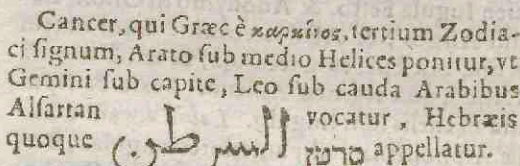 Cancer, qui Græcè καρκίνος, tertium Zodia-
ci ſignum, Arato ſub medio Helices ponitur, vt
Gemini ſub capite, Leo ſub cauda Arabibus
Alſartan السرطن vocatur, Hebræis
quoque סרטן appellatur.